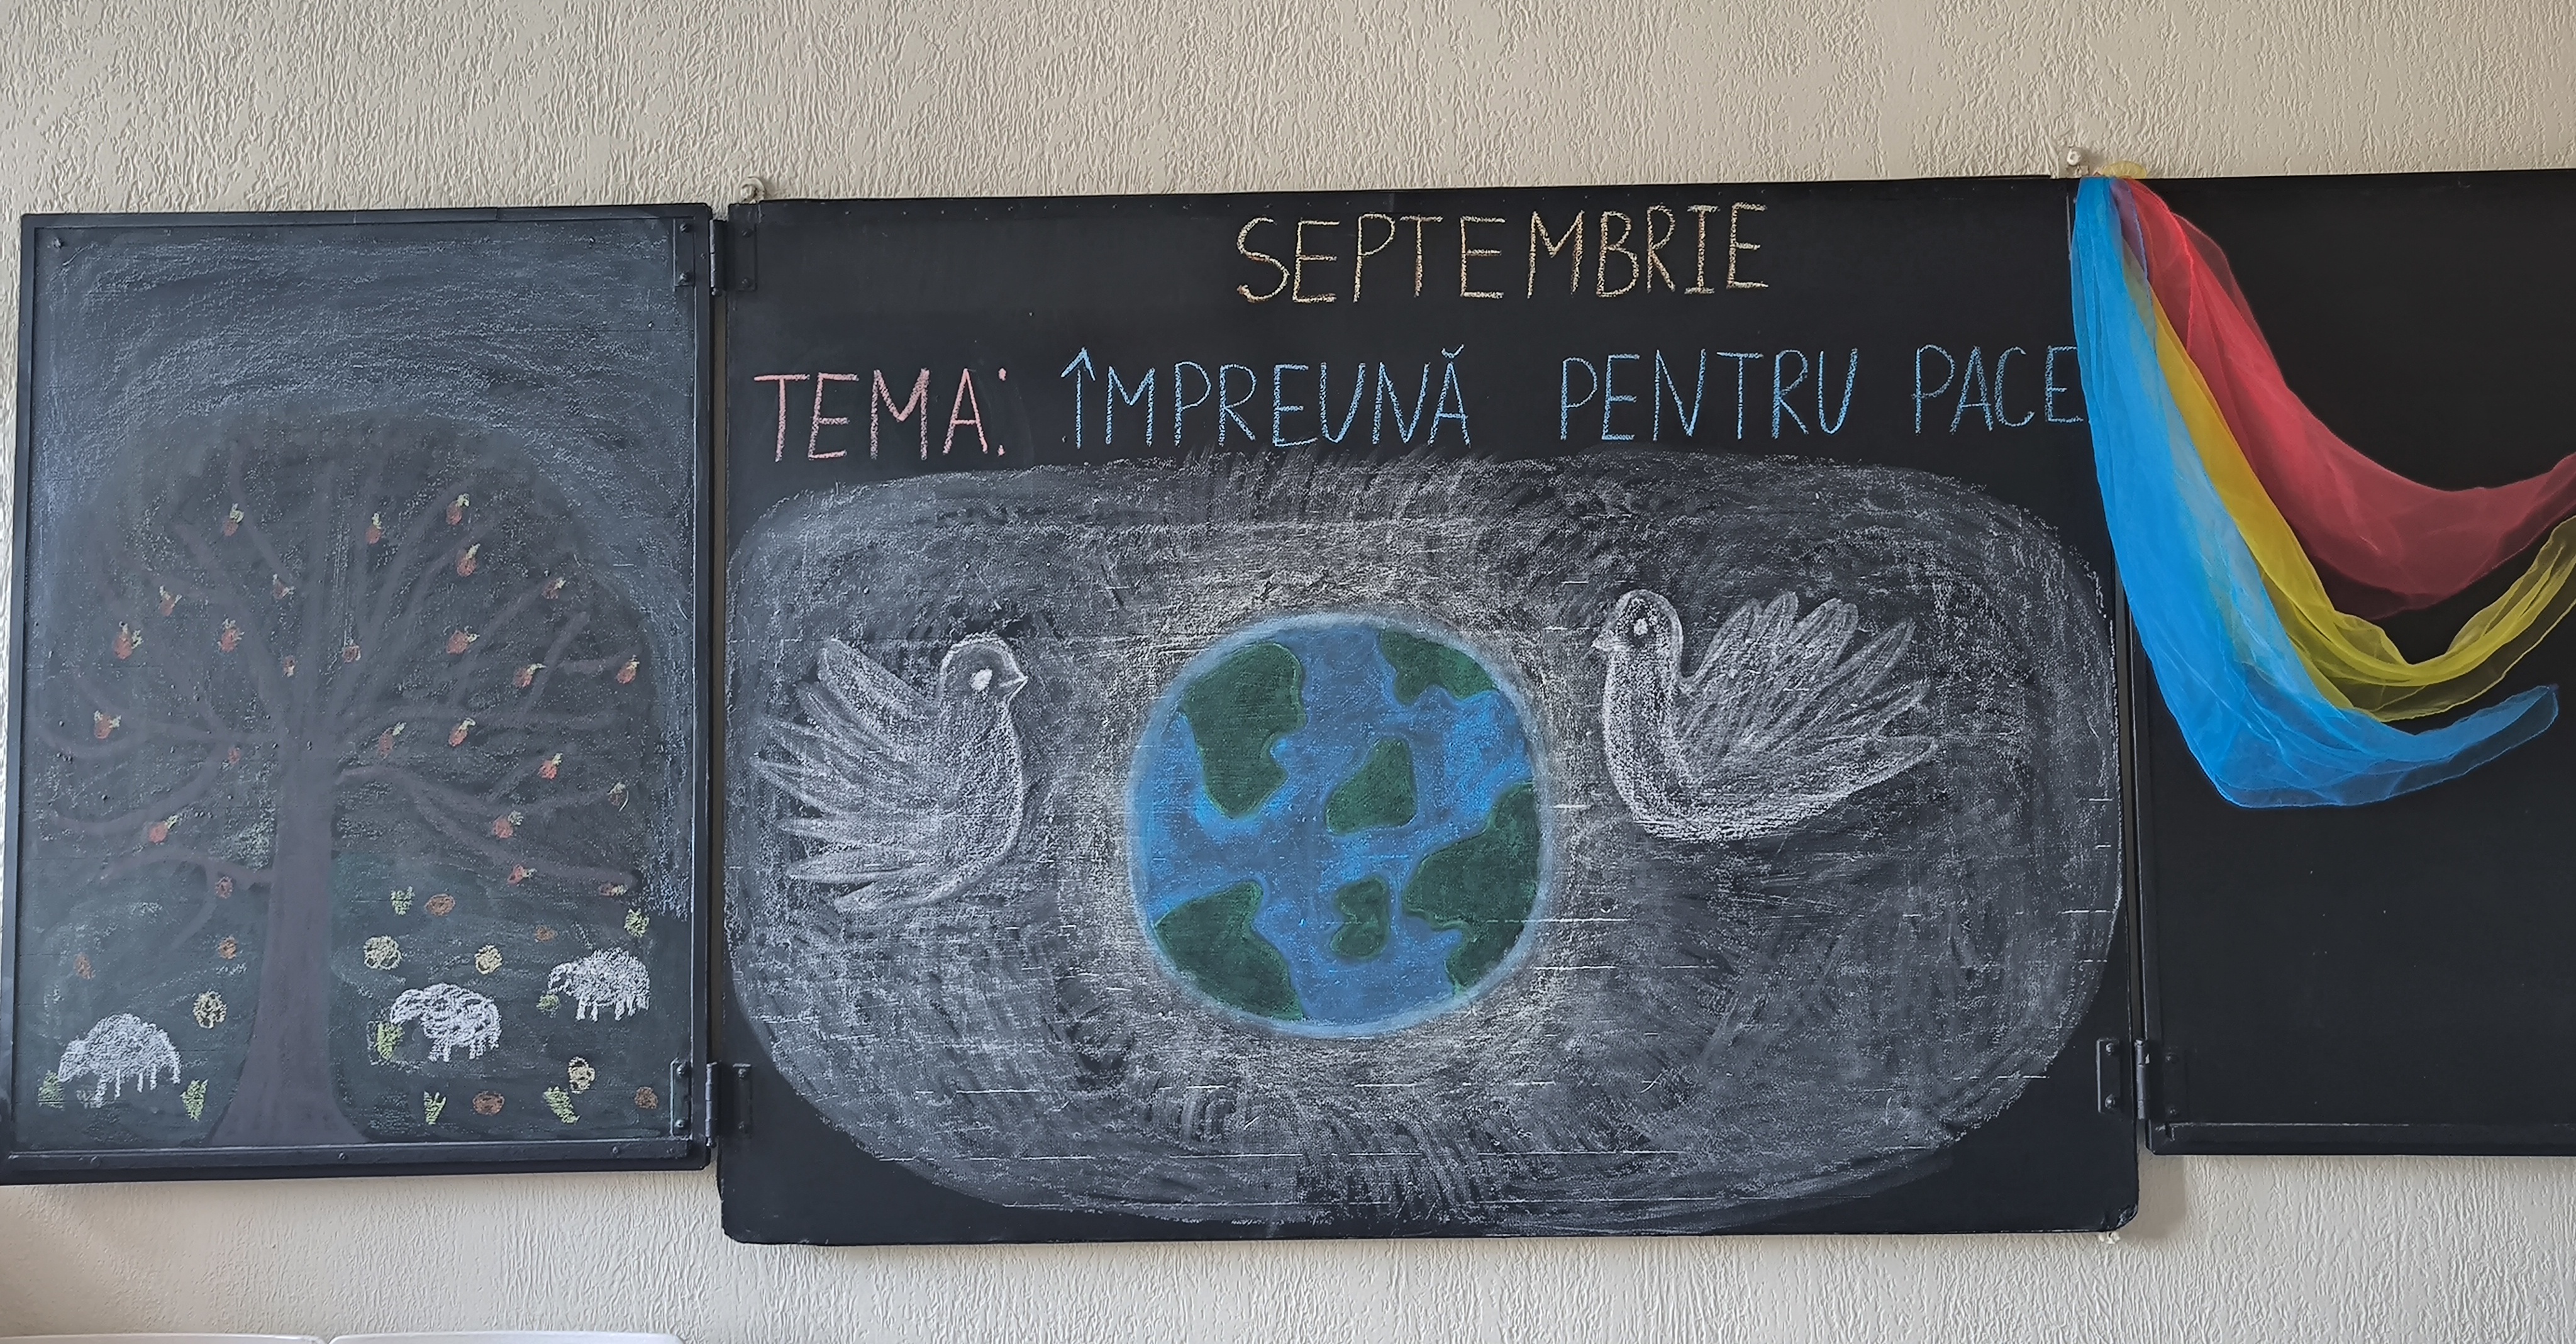 SEPTEMBRIE
TEMA: ÎMPREUNĂ PENTRU PACE